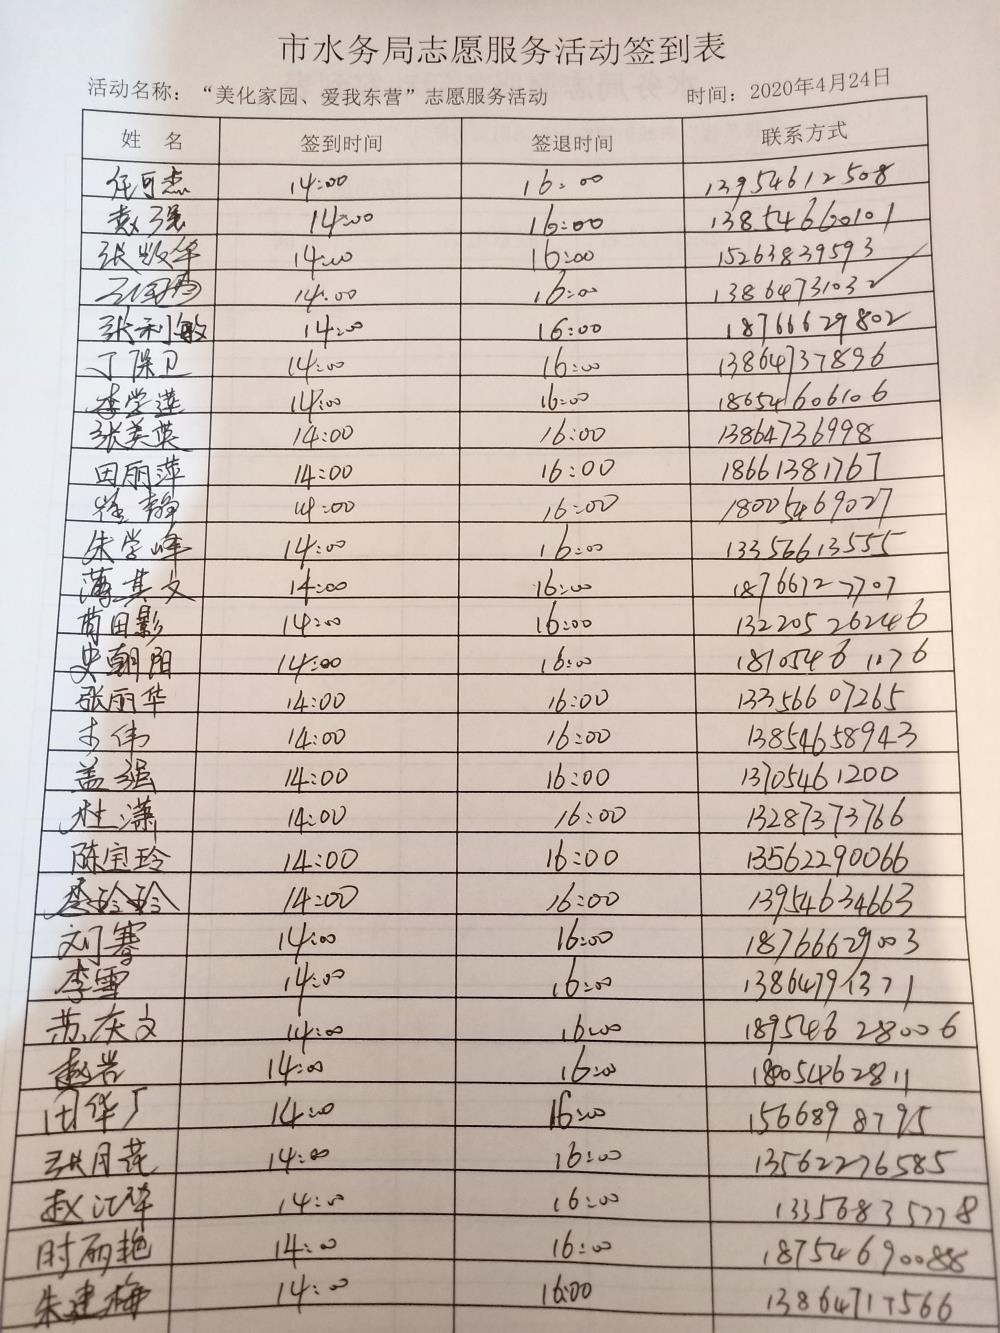 市水务局志愿服务活动签到表
活动名称：“美化家园、爱我东营”志愿服务活动 时间：2020年4月24日
姓 名 签到时间 签退时间 联系方式
任可杰 14:00 16:00 13954612508
赵强 14:00 16:00 13854660101
14:00 16:00 15263839593
14:00 16:00 13864731032
张利敏 14:00 16:00 18766629802
丁保卫 14:00 16:00 13864737896
李学莲 14:00 16:00 18654606106
张美英 14:00 16:00 13864736998
田丽萍 14:00 16:00 18661381767
静 14:00 16:00 18005469027
朱学峰 14:00 16:00 13356613555
薄其文 14:00 16:00 18766127707
苗田影 14:00 16:00 13220526246
史朝阳 14:00 16:00 18105461276
张丽华 14:00 16:00 13356607265
伟 14:00 16:00 13854658943
盖强 14:00 16:00 13705461200
杜潇 14:00 16:00 13287373766
陈宝玲 14:00 16:00 13562290066
李玲玲 14:00 16:00 13954634663
刘骞 14:00 16:00 18766629003
李雪 14:00 16:00 13864791371
苏庆文 14:00 16:00 18954628006
赵岩 14:00 16:00 18005462811
田华厂 14:00 16:00 1566898795
张月莲 14:00 16:00 13562276585
赵江华 14:00 16:00 13356835778
时丽艳 14:00 16:00 18754690088
朱建梅 14:00 16:00 13864717566